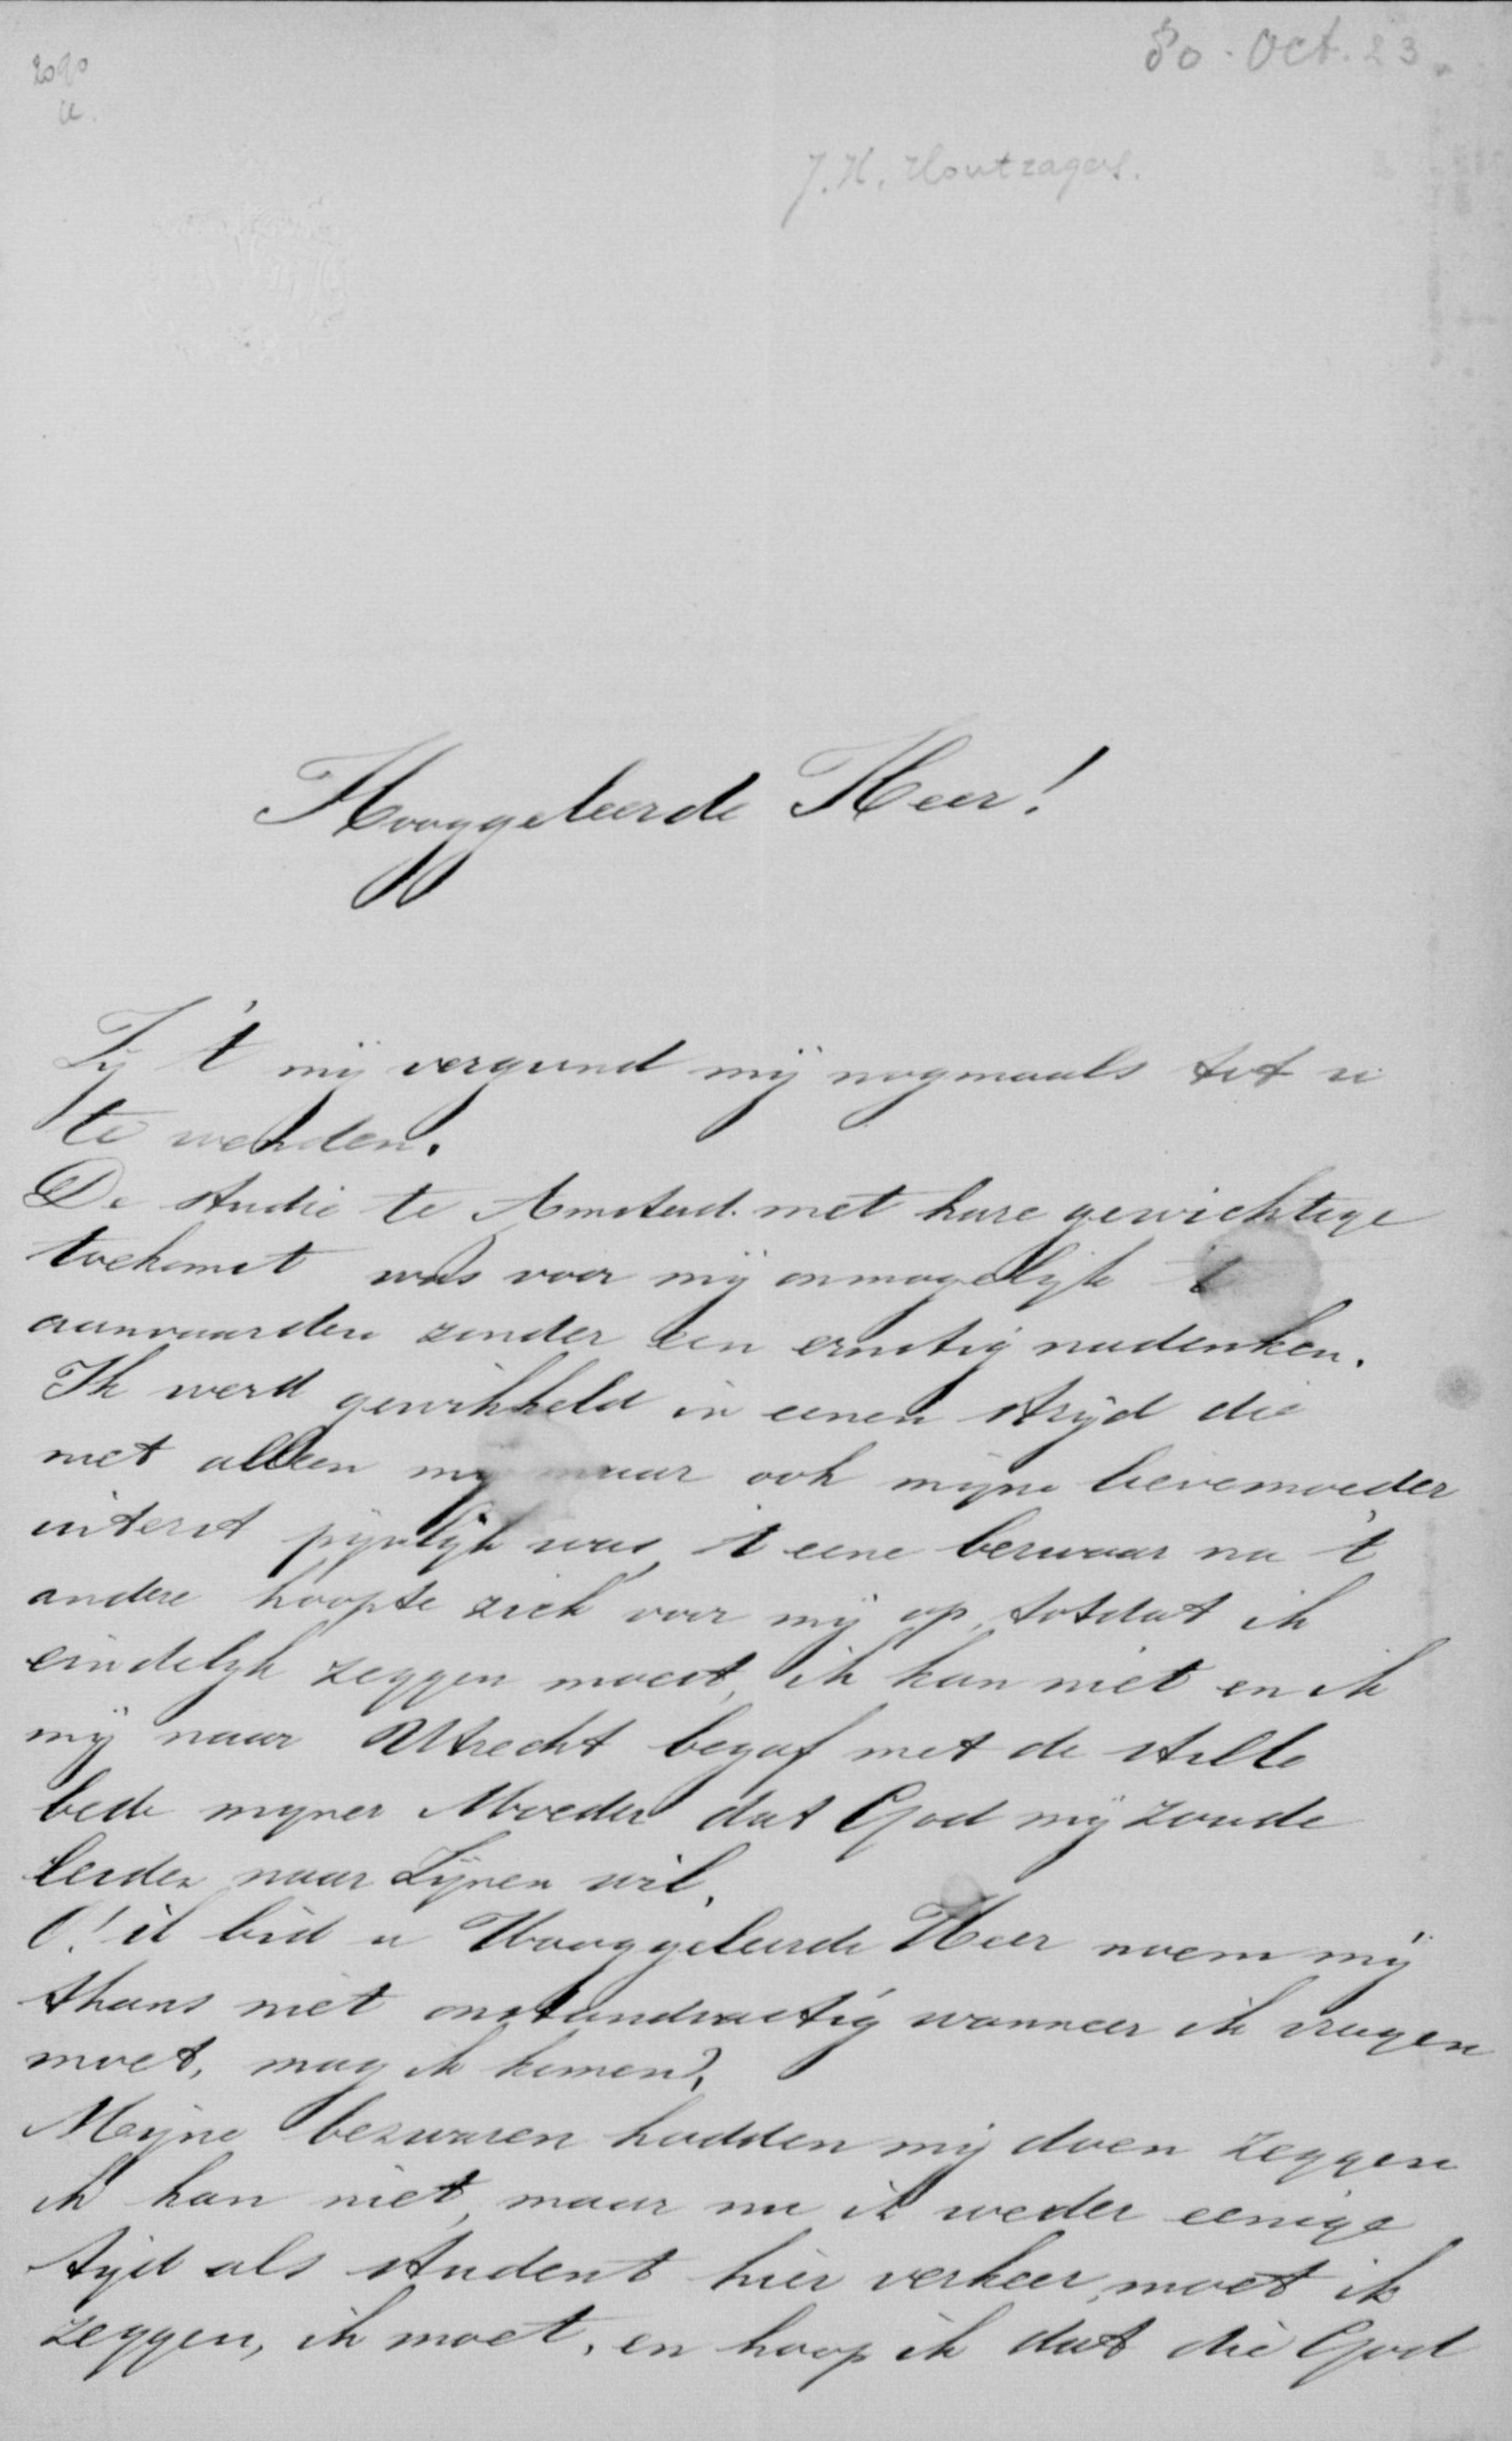 80 - Oct. 23.
2090
a.
J. H. Houtzagers.
Hooggeleerde Heer!
Zij 't mij vergund mij nogmaals tot u
te wenden.
De studie te Amsterd. met hare gewichtige
toekomst was voor mij onmogelijk t
aanvaarden zonder een ernstig nadenken.
Ik werd gewikkeld in eenen strijd die
niet alleen mij maar ook mijne lievemoeder
uiterst pijnlijk was, 't eene bezwaar na 't
andere hoopte zich voor mij op, totdat ik
eindelijk zeggen moest, ik kan niet en ik
mij naar Utrecht begaf met de stille
bede mijner Moeder dat God mij zoude
leiden naar Zijnen wil.
O! ik bid u Hooggeleerde Heer noem mij
thans niet onstandvastig wanneer ik vragen
moet, mag ik komen?
Mijne bezwaren hadden mij doen zeggen
ik kan niet, maar nu ik weder eenige
tijd als student hier verkeer, moet ik
zeggen, ik moet, en hoop ik dat die God